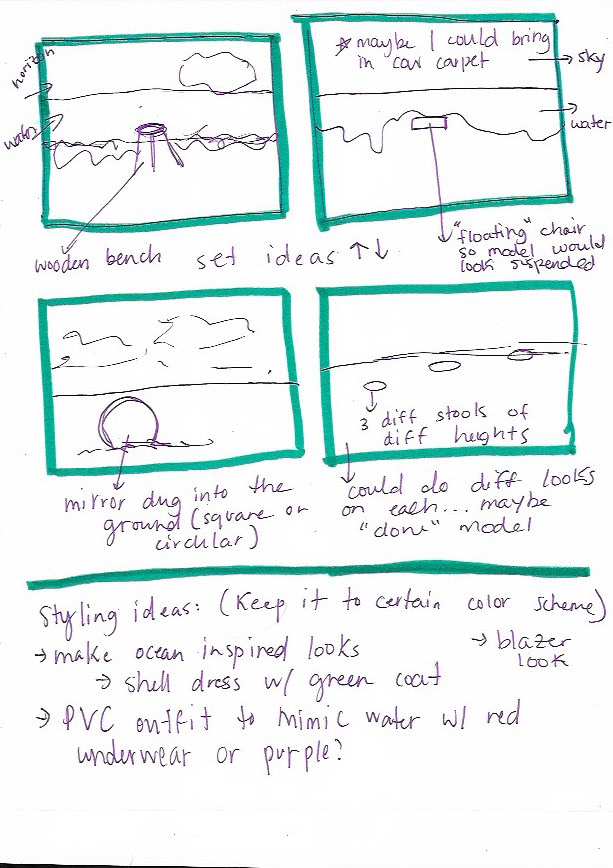 horizon
water
wooden bench
set ideas ↑↓
☆ maybe I could bring
in car carpet
→ sky
→ water
"floating" chair
so model would
look suspended
mirror dug into the
ground (square or
circular)
3 diff stools of
diff heights
could do diff looks
on each... maybe
"done" model
Styling ideas: (Keep it to certain color scheme)
→ make ocean inspired looks
→ blazer
look
→ shell dress w/ green coat
→ PVC outfit to mimic water w/ red
underwear or purple?